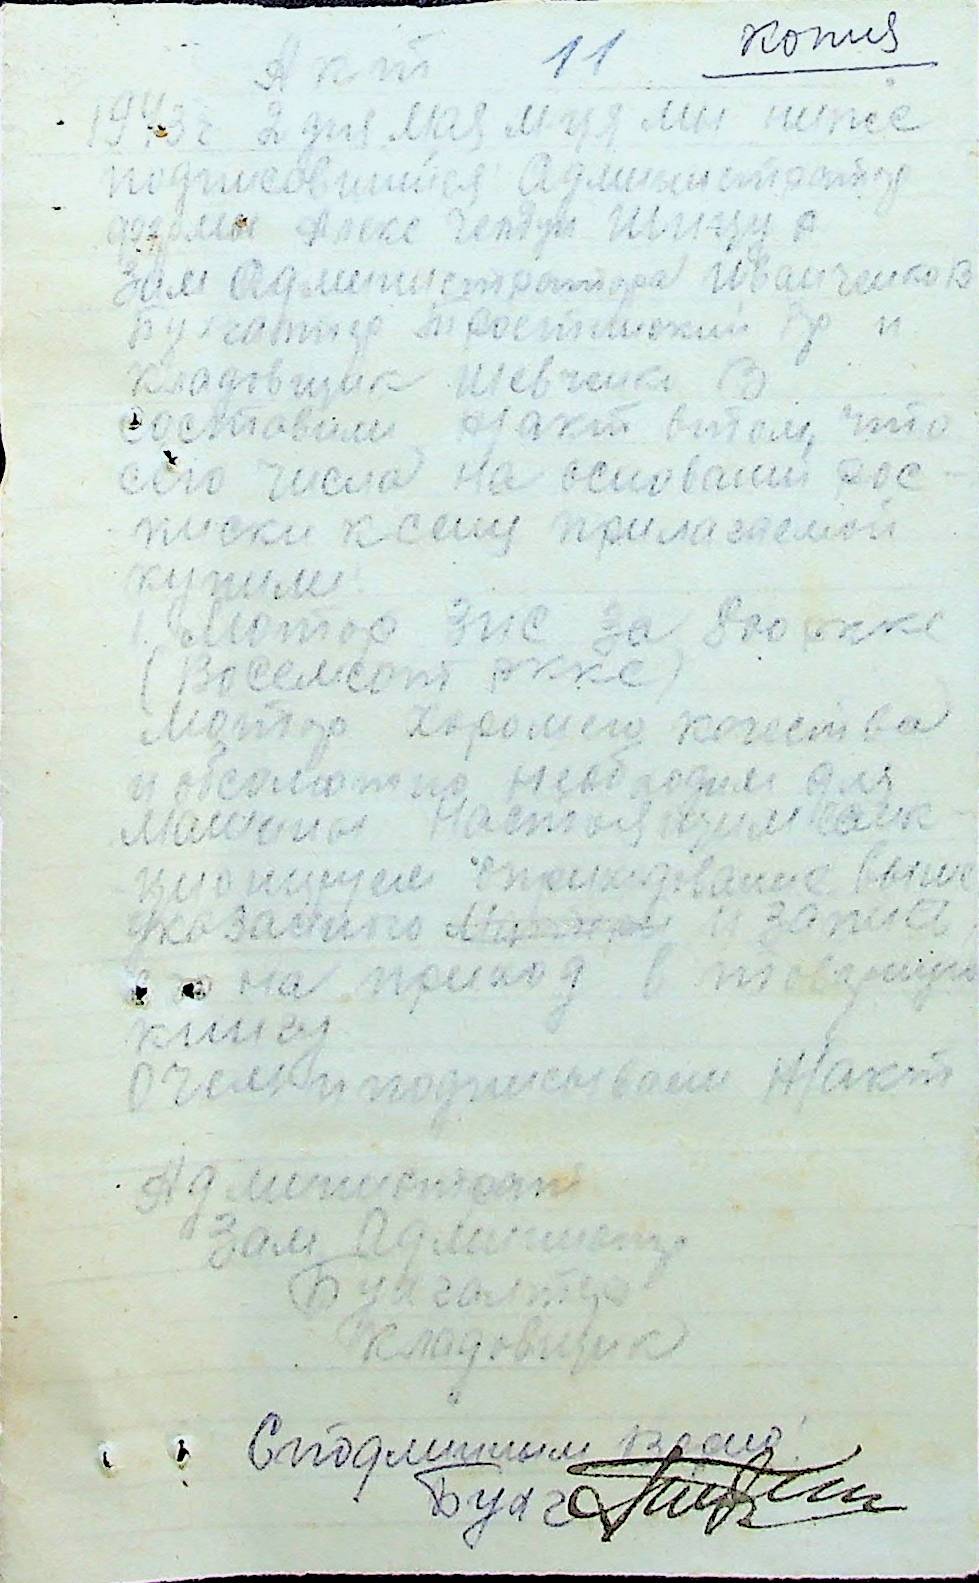 копия
Акт 11
1943 г 2 дня мая м-ця мы ниже
подписовшийся Администратор
фермы Алекс
Зам Администратора Иванченко В
Бухгалтер Гр и
кладовщик Шевченко В
состовили н/акт в том, что
сего числа на основании рос-
писки к сему прилагаемой
купили
1. Мотор ЗИС за 800 ркке
(Восемсот ркке)
Мотор хорошего качества
и обсолютно необходим для
машины Настоящим санк-
ционируем оприходование выше
указанного и запись
его на приход в товарную
книгу
О чем и подписываем н/акт
Администрат
Зам Администр
Бухгалтер
Кладовщик
С подлинным верно:
Бухг